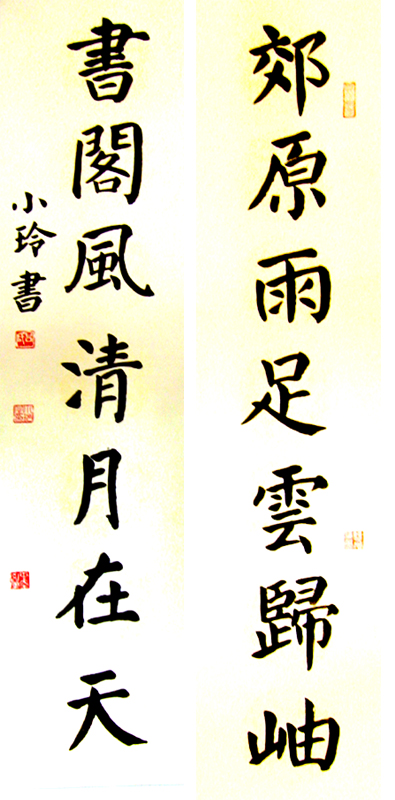 郊原雨足雲歸岫
書閣風清月在天
小玲書